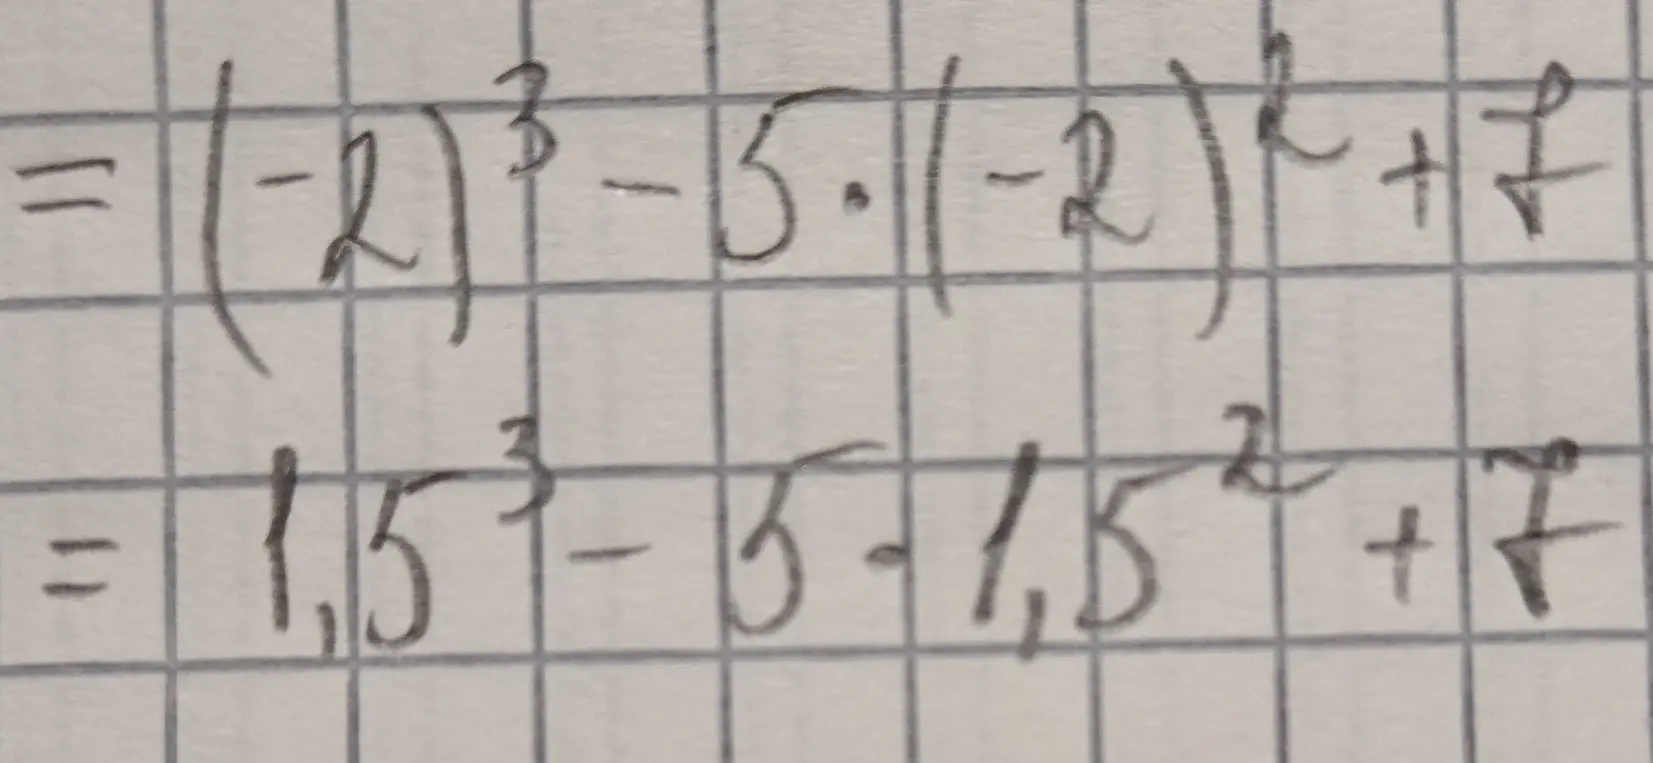 = (-2)³ - 5 · (-2)² + 7
= 1,5³ - 5 · 1,5² + 7